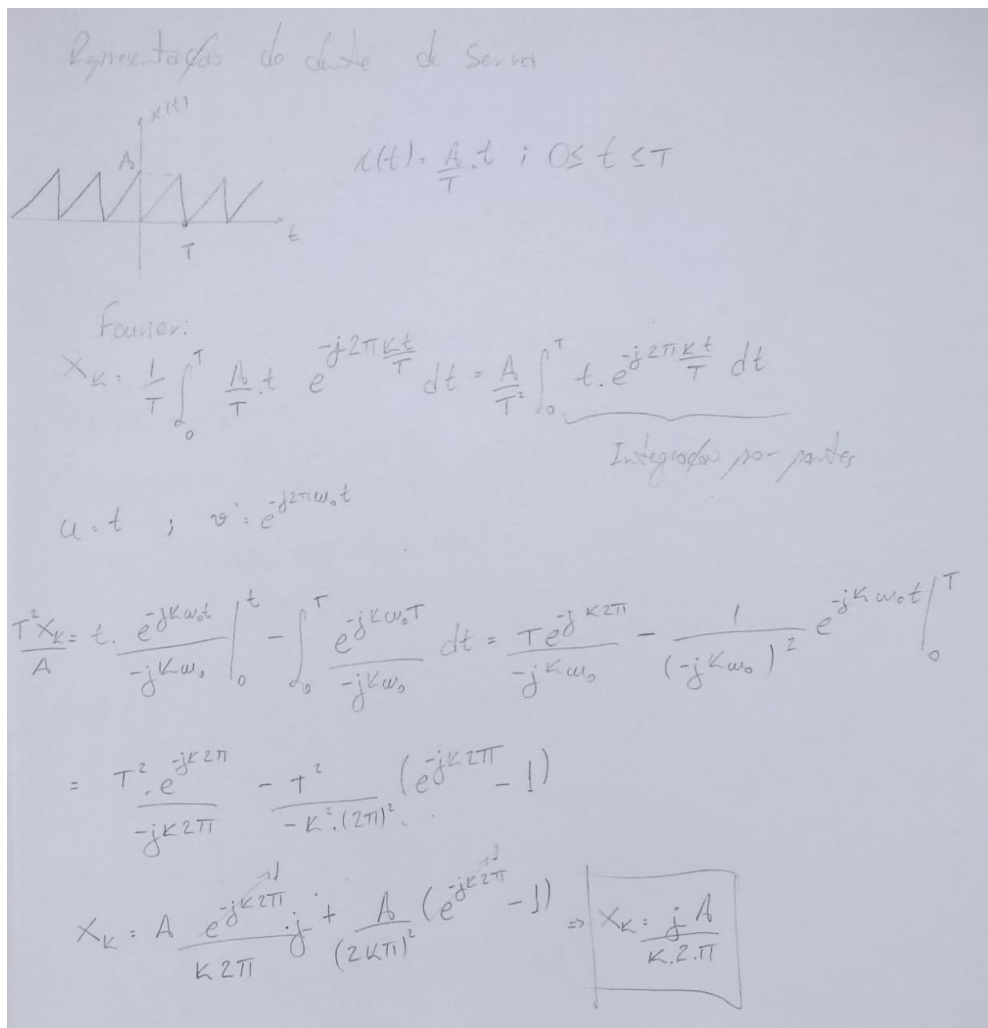 Representação do dente de Serra
x(t)
A
x(t) = A/T . t ; 0 ≤ t ≤ T
t
T
Fourier:
X_K = 1/T ∫_0^T A/T . t e^{-j2πKt/T} dt = A/T² ∫_0^T t . e^{-j2πKt/T} dt
Integração por partes
u = t ; v' = e^{-j2πω₀t}
T²X_K/A = t . e^{-jKω₀t}/(-jKω₀) |_0^t - ∫_0^T e^{-jKω₀T}/(-jKω₀) dt = Te^{-jK2π}/(-jKω₀) - 1/(-jKω₀)² e^{-jKω₀t} |_0^T
= T² . e^{-jK2π}/(-jK2π) - T²/(-K².(2π)²) (e^{-jK2π} - 1)
X_K = A e^{-jK2π}/(K2π) . j + A/(2Kπ)² (e^{-jK2π} - 1) ⇒ X_K = jA/(K.2.π)
1
1